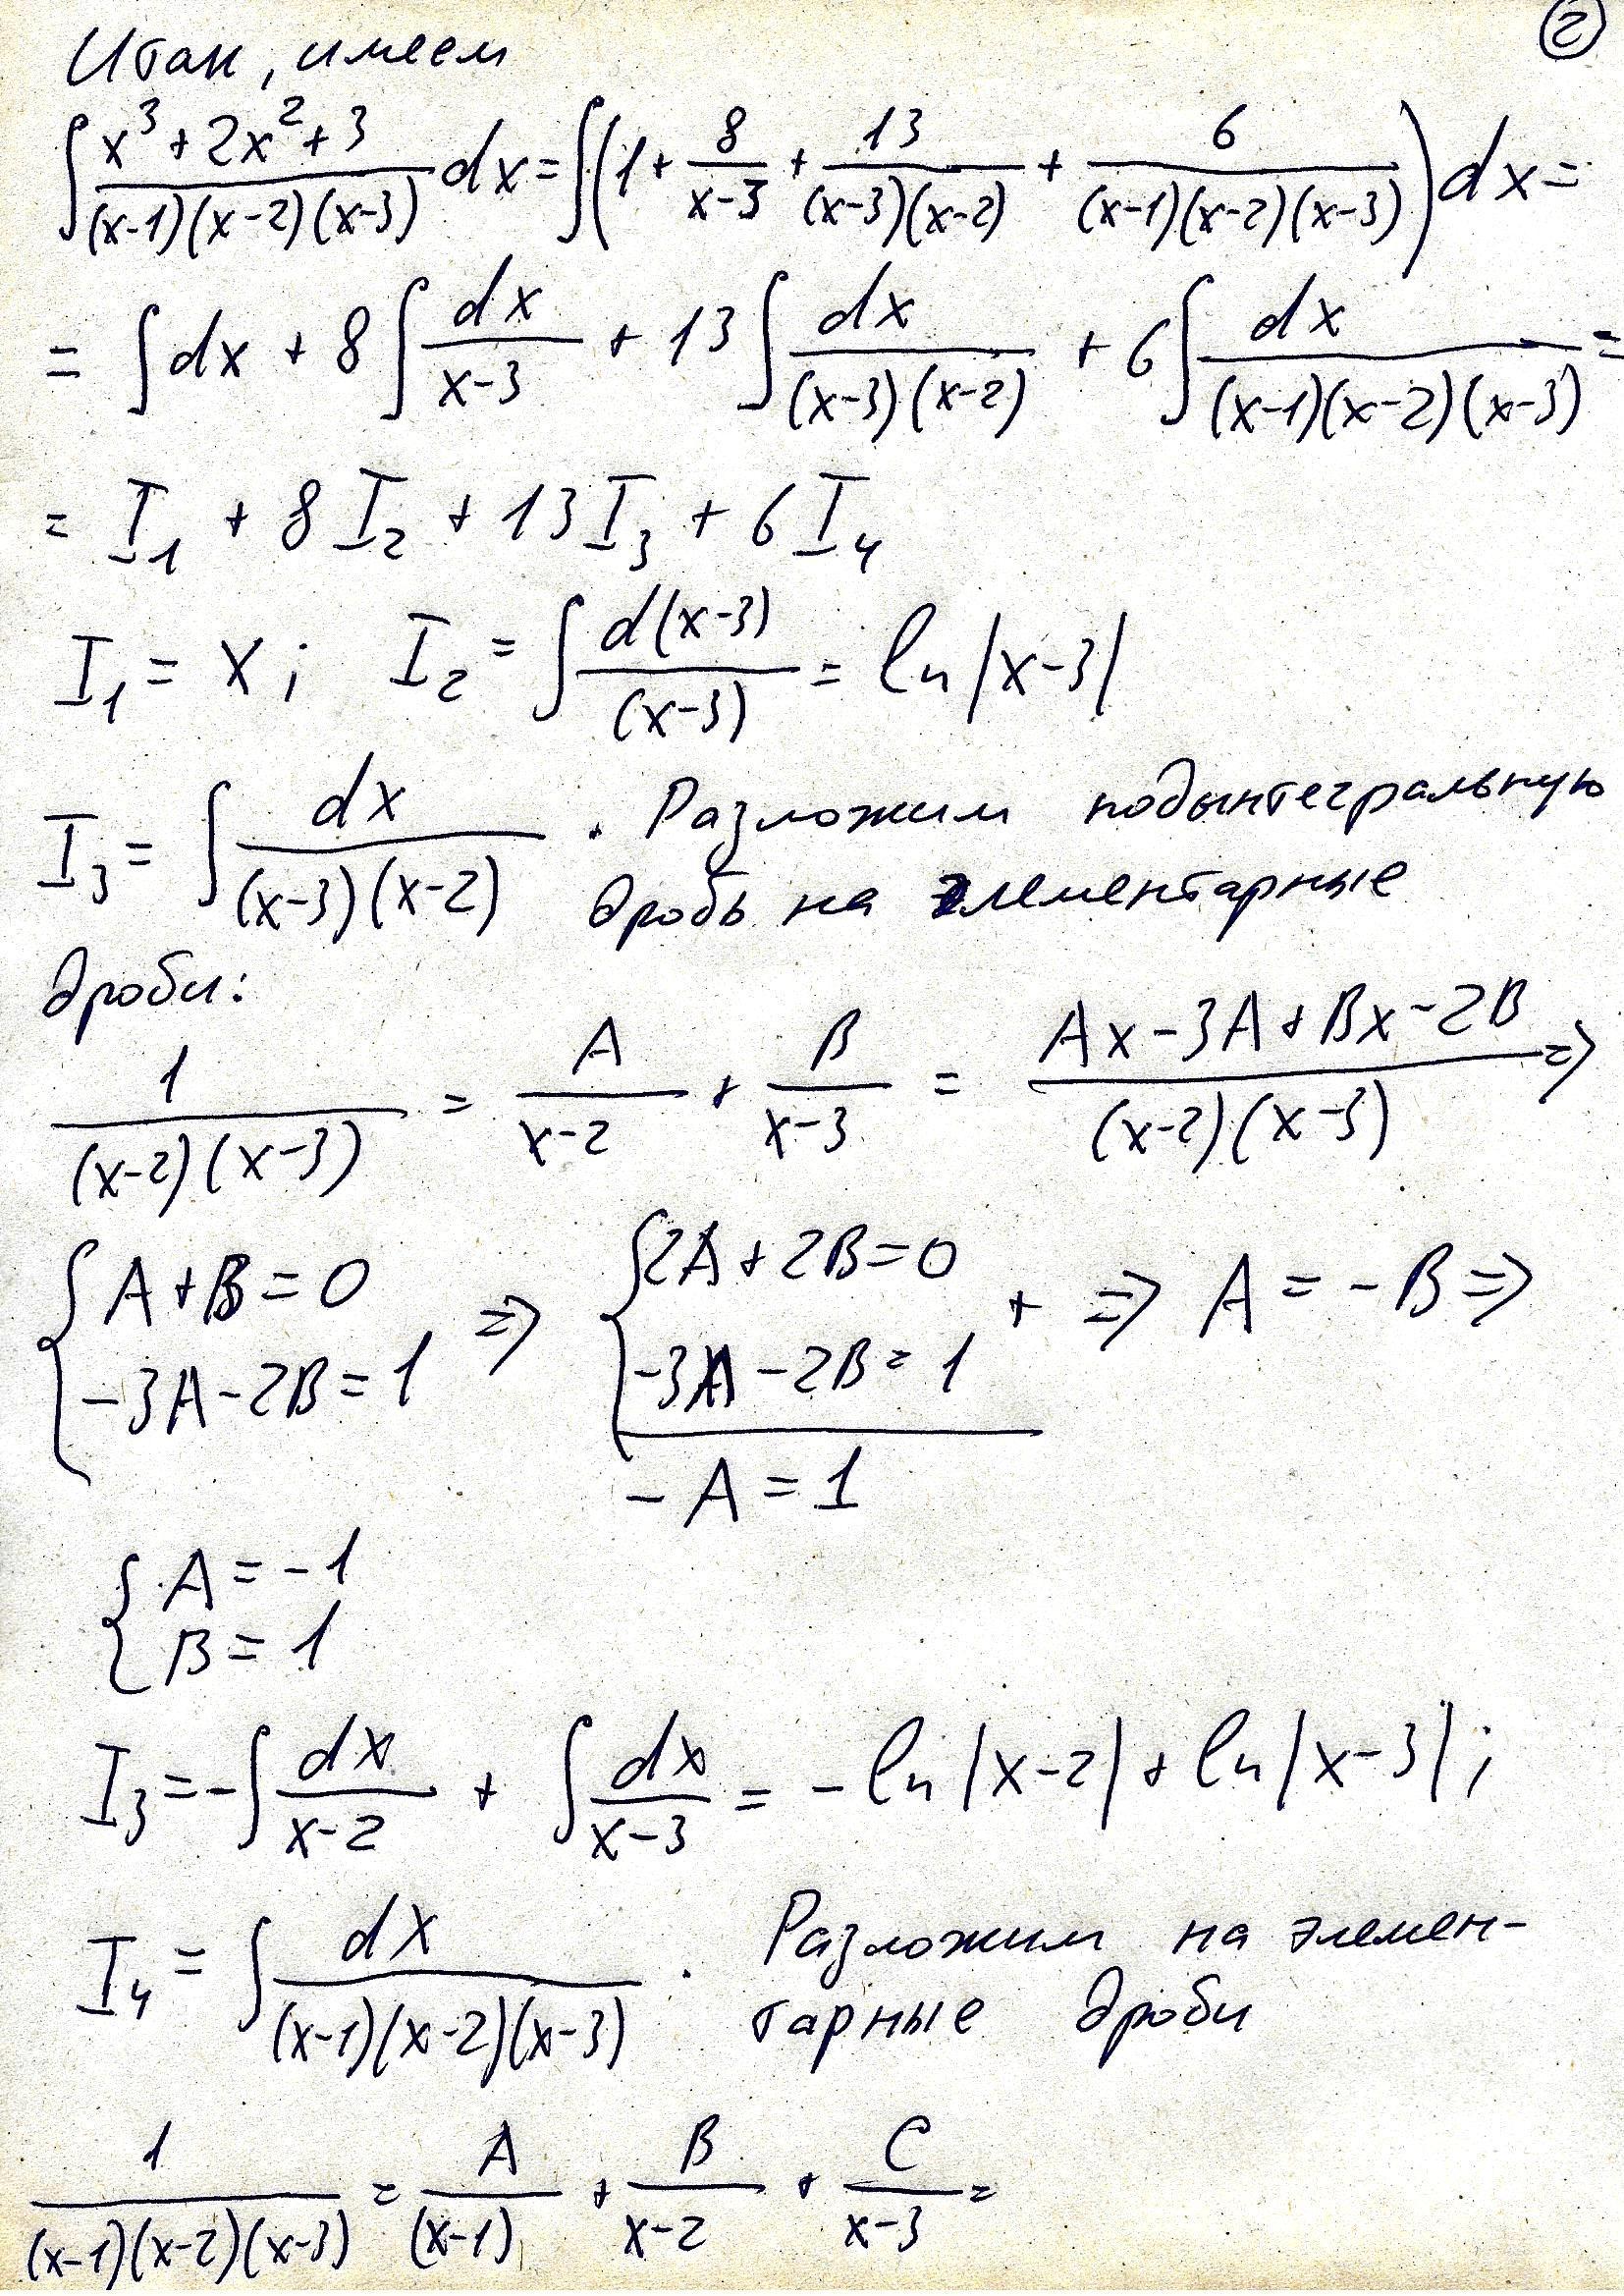 ②
Итак, имеем
∫ (x³+2x²+3)/((x-1)(x-2)(x-3)) dx = ∫(1 + 8/(x-3) + 13/((x-3)(x-2)) + 6/((x-1)(x-2)(x-3))) dx =
= ∫dx + 8∫ dx/(x-3) + 13∫ dx/((x-3)(x-2)) + 6∫ dx/((x-1)(x-2)(x-3)) =
= I₁ + 8I₂ + 13I₃ + 6I₄
I₁ = x; I₂ = ∫ d(x-3)/(x-3) = ln|x-3|
I₃ = ∫ dx/((x-3)(x-2)). Разложим подынтегральную
дробь на элементарные
дроби:
1/((x-2)(x-3)) = A/(x-2) + B/(x-3) = (Ax-3A+Bx-2B)/((x-2)(x-3)) =>
{ A+B=0 => { 2A+2B=0 + => A=-B =>
-3A-2B=1 -3A-2B=1
-A=1
{ A=-1
B=1
I₃ = -∫ dx/(x-2) + ∫ dx/(x-3) = -ln|x-2| + ln|x-3|;
I₄ = ∫ dx/((x-1)(x-2)(x-3)). Разложим на элемен-
тарные дроби
1/((x-1)(x-2)(x-3)) = A/(x-1) + B/(x-2) + C/(x-3) =